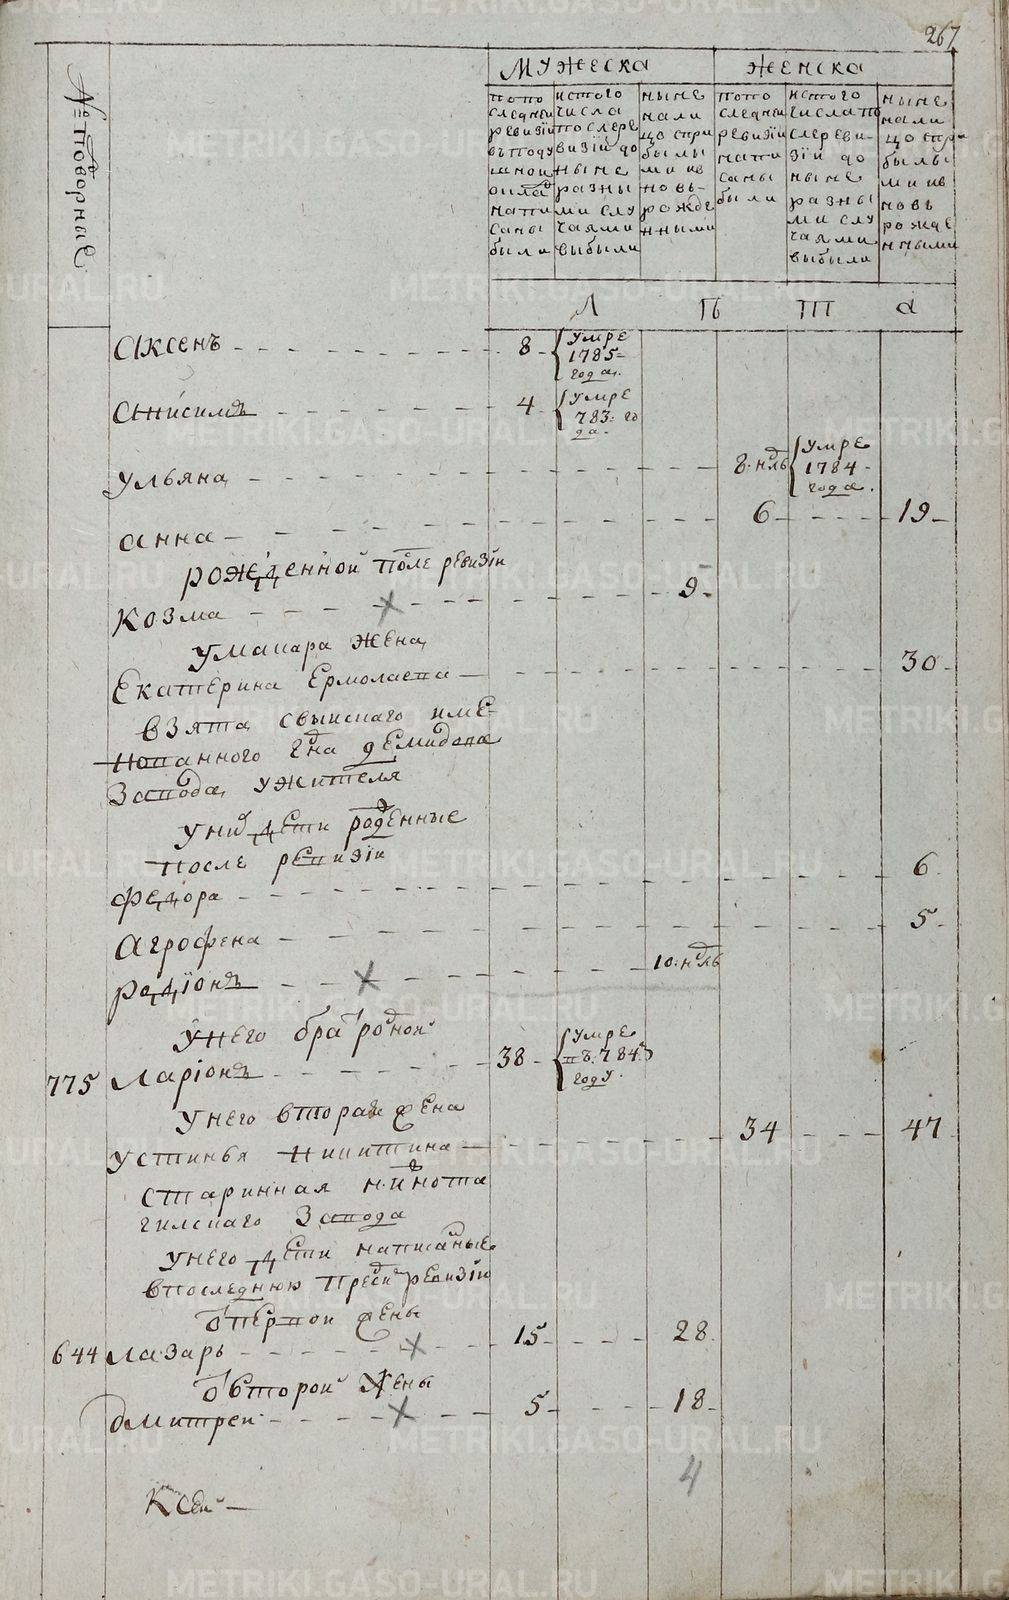 267
№ подворная
МУЖЕСКА
ЖЕНСКА
попо следней ревизии въ подушной окладъ написаны были
ис того числа после ревизии до ныне разными случаями выбыли
ныне налицо с прибылыми и вновь рожденными
попо следней ревизии написаны были
ис того числа после ревизии до ныне разными случаями выбыли
ныне налицо с прибылыми и вновь рожденными
Л П Т а
Аксенъ 8 умре 1785 года.
Анисимъ 4 умре 783: года.
Ульяна 8. ндль умре 1784 года.
Анна 6 19
рожденной после ревизии
Козма 9.
У Макара жена
Екатерина Ермолаева 30
взята с выискаго име-
нованного гдна демидова
Завода, ужителя
У них дети рожденные
после ревизии
Федора 6.
Агрофена 5.
Радионъ 10: ндль
У него брат родной
775 Ларионъ 38 умре в 784м году.
У него вторая жена
Устинья Никитина 34 47
старинная нижнота
гилскаго Завода
У него дети написаные
в последнюю пред сим ревизию
От первой жены
644 Лазарь 15 28
От второй жены
Дмитрей 5 18
4
К Сей
METRIKI.GASO-URAL.RU